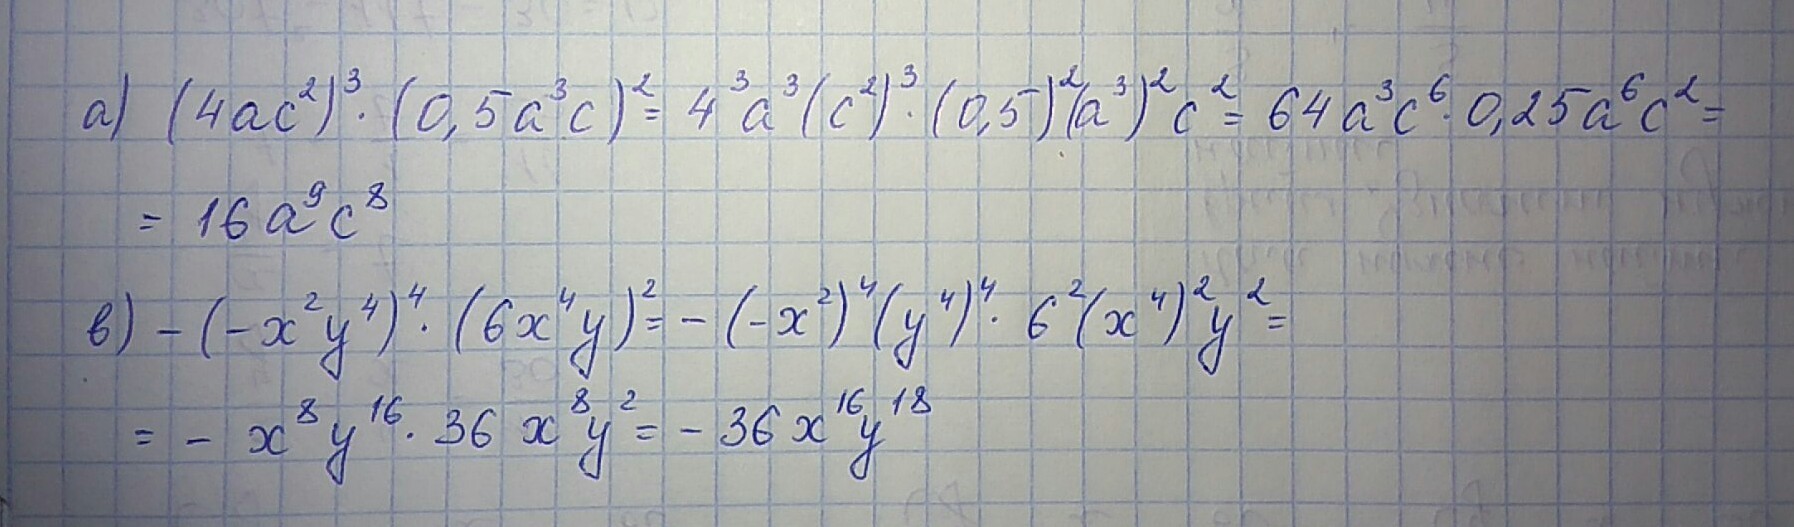 а) (4ac²)³ · (0,5a³c)² = 4³a³(c²)³ · (0,5)²(a³)²c² = 64a³c⁶ · 0,25a⁶c² =
= 16a⁹c⁸
в) – (–x²y⁴)⁴ · (6x⁴y)² = – (–x²)⁴(y⁴)⁴ · 6²(x⁴)²y² =
= – x⁸y¹⁶ · 36x⁸y² = – 36x¹⁶y¹⁸